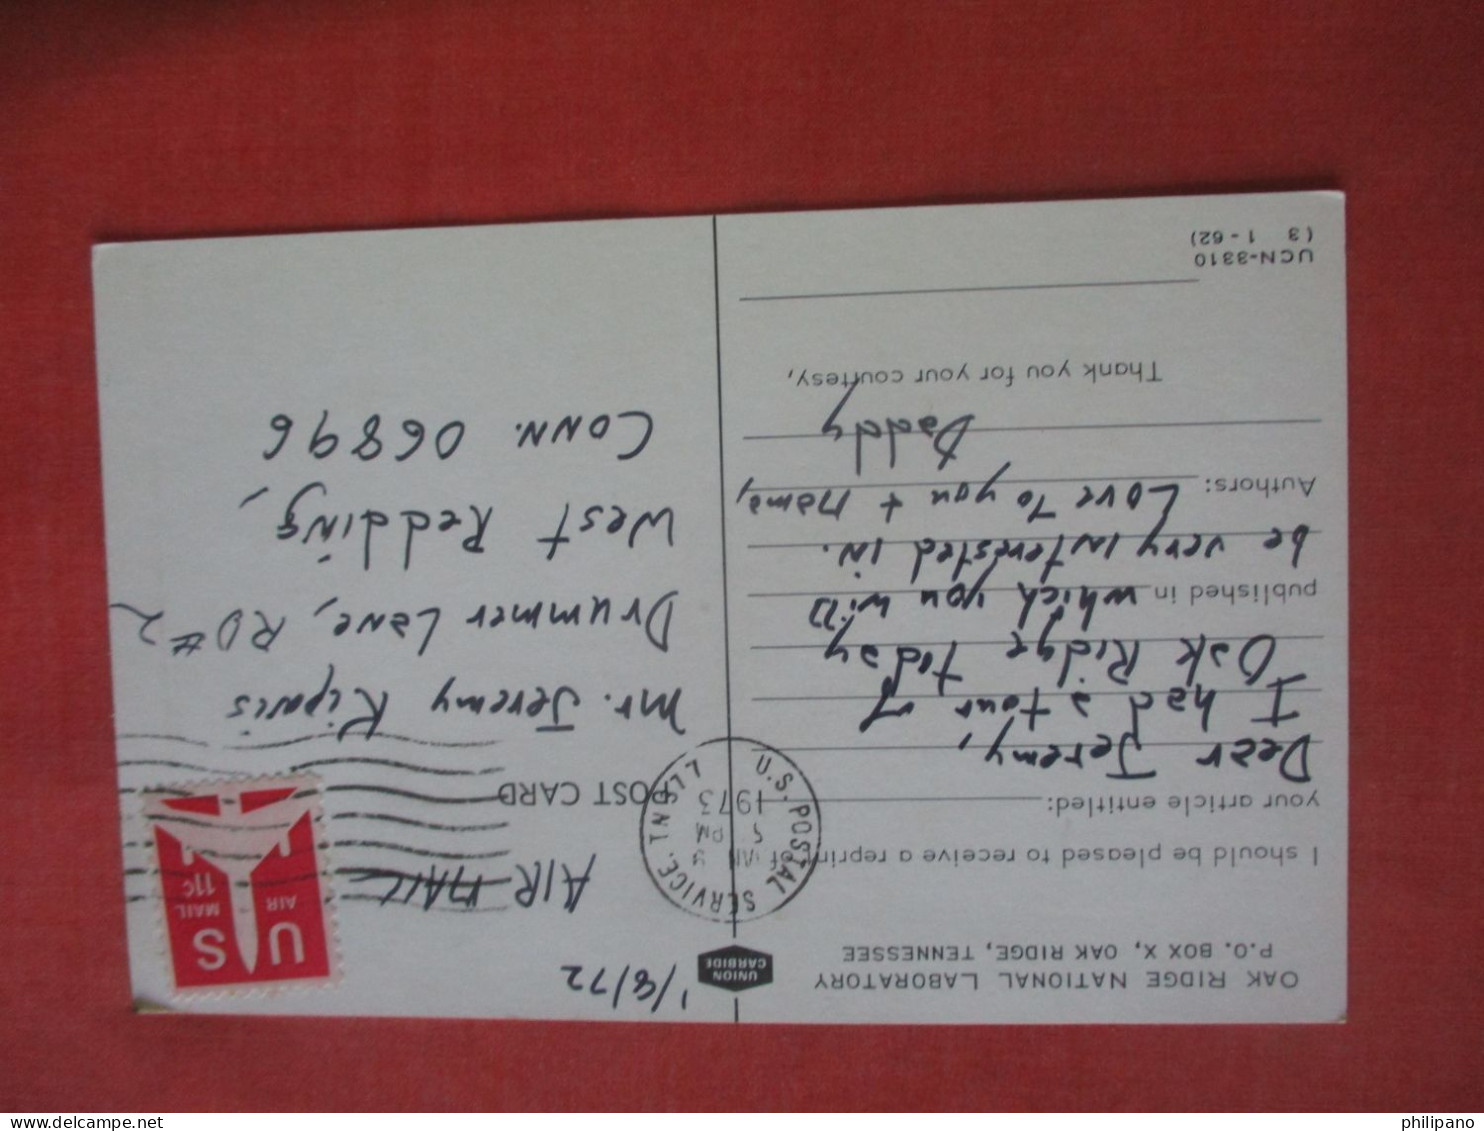 OAK RIDGE NATIONAL LABORATORY
P.O. BOX X, OAK RIDGE, TENNESSEE
I should be pleased to receive a reprint of
your article entitled:
Dear Jeremy,
I had a tour of
Oak Ridge today
published in which you will
be very interested in.
Authors: Love to you + mama,
Daddy
Thank you for your courtesy,
UCN-3310
(3 1-62)
UNION
CARBIDE
1/8/72
AIR MAIL
POST CARD
U.S. POSTAL SERVICE, TN 377
9
PM
1973
US
AIR MAIL
11c
Mr. Jeremy Ripanis
Drummer Lane, RD#2
West Redding,
CONN. 06896
www.delcampe.net
philipano